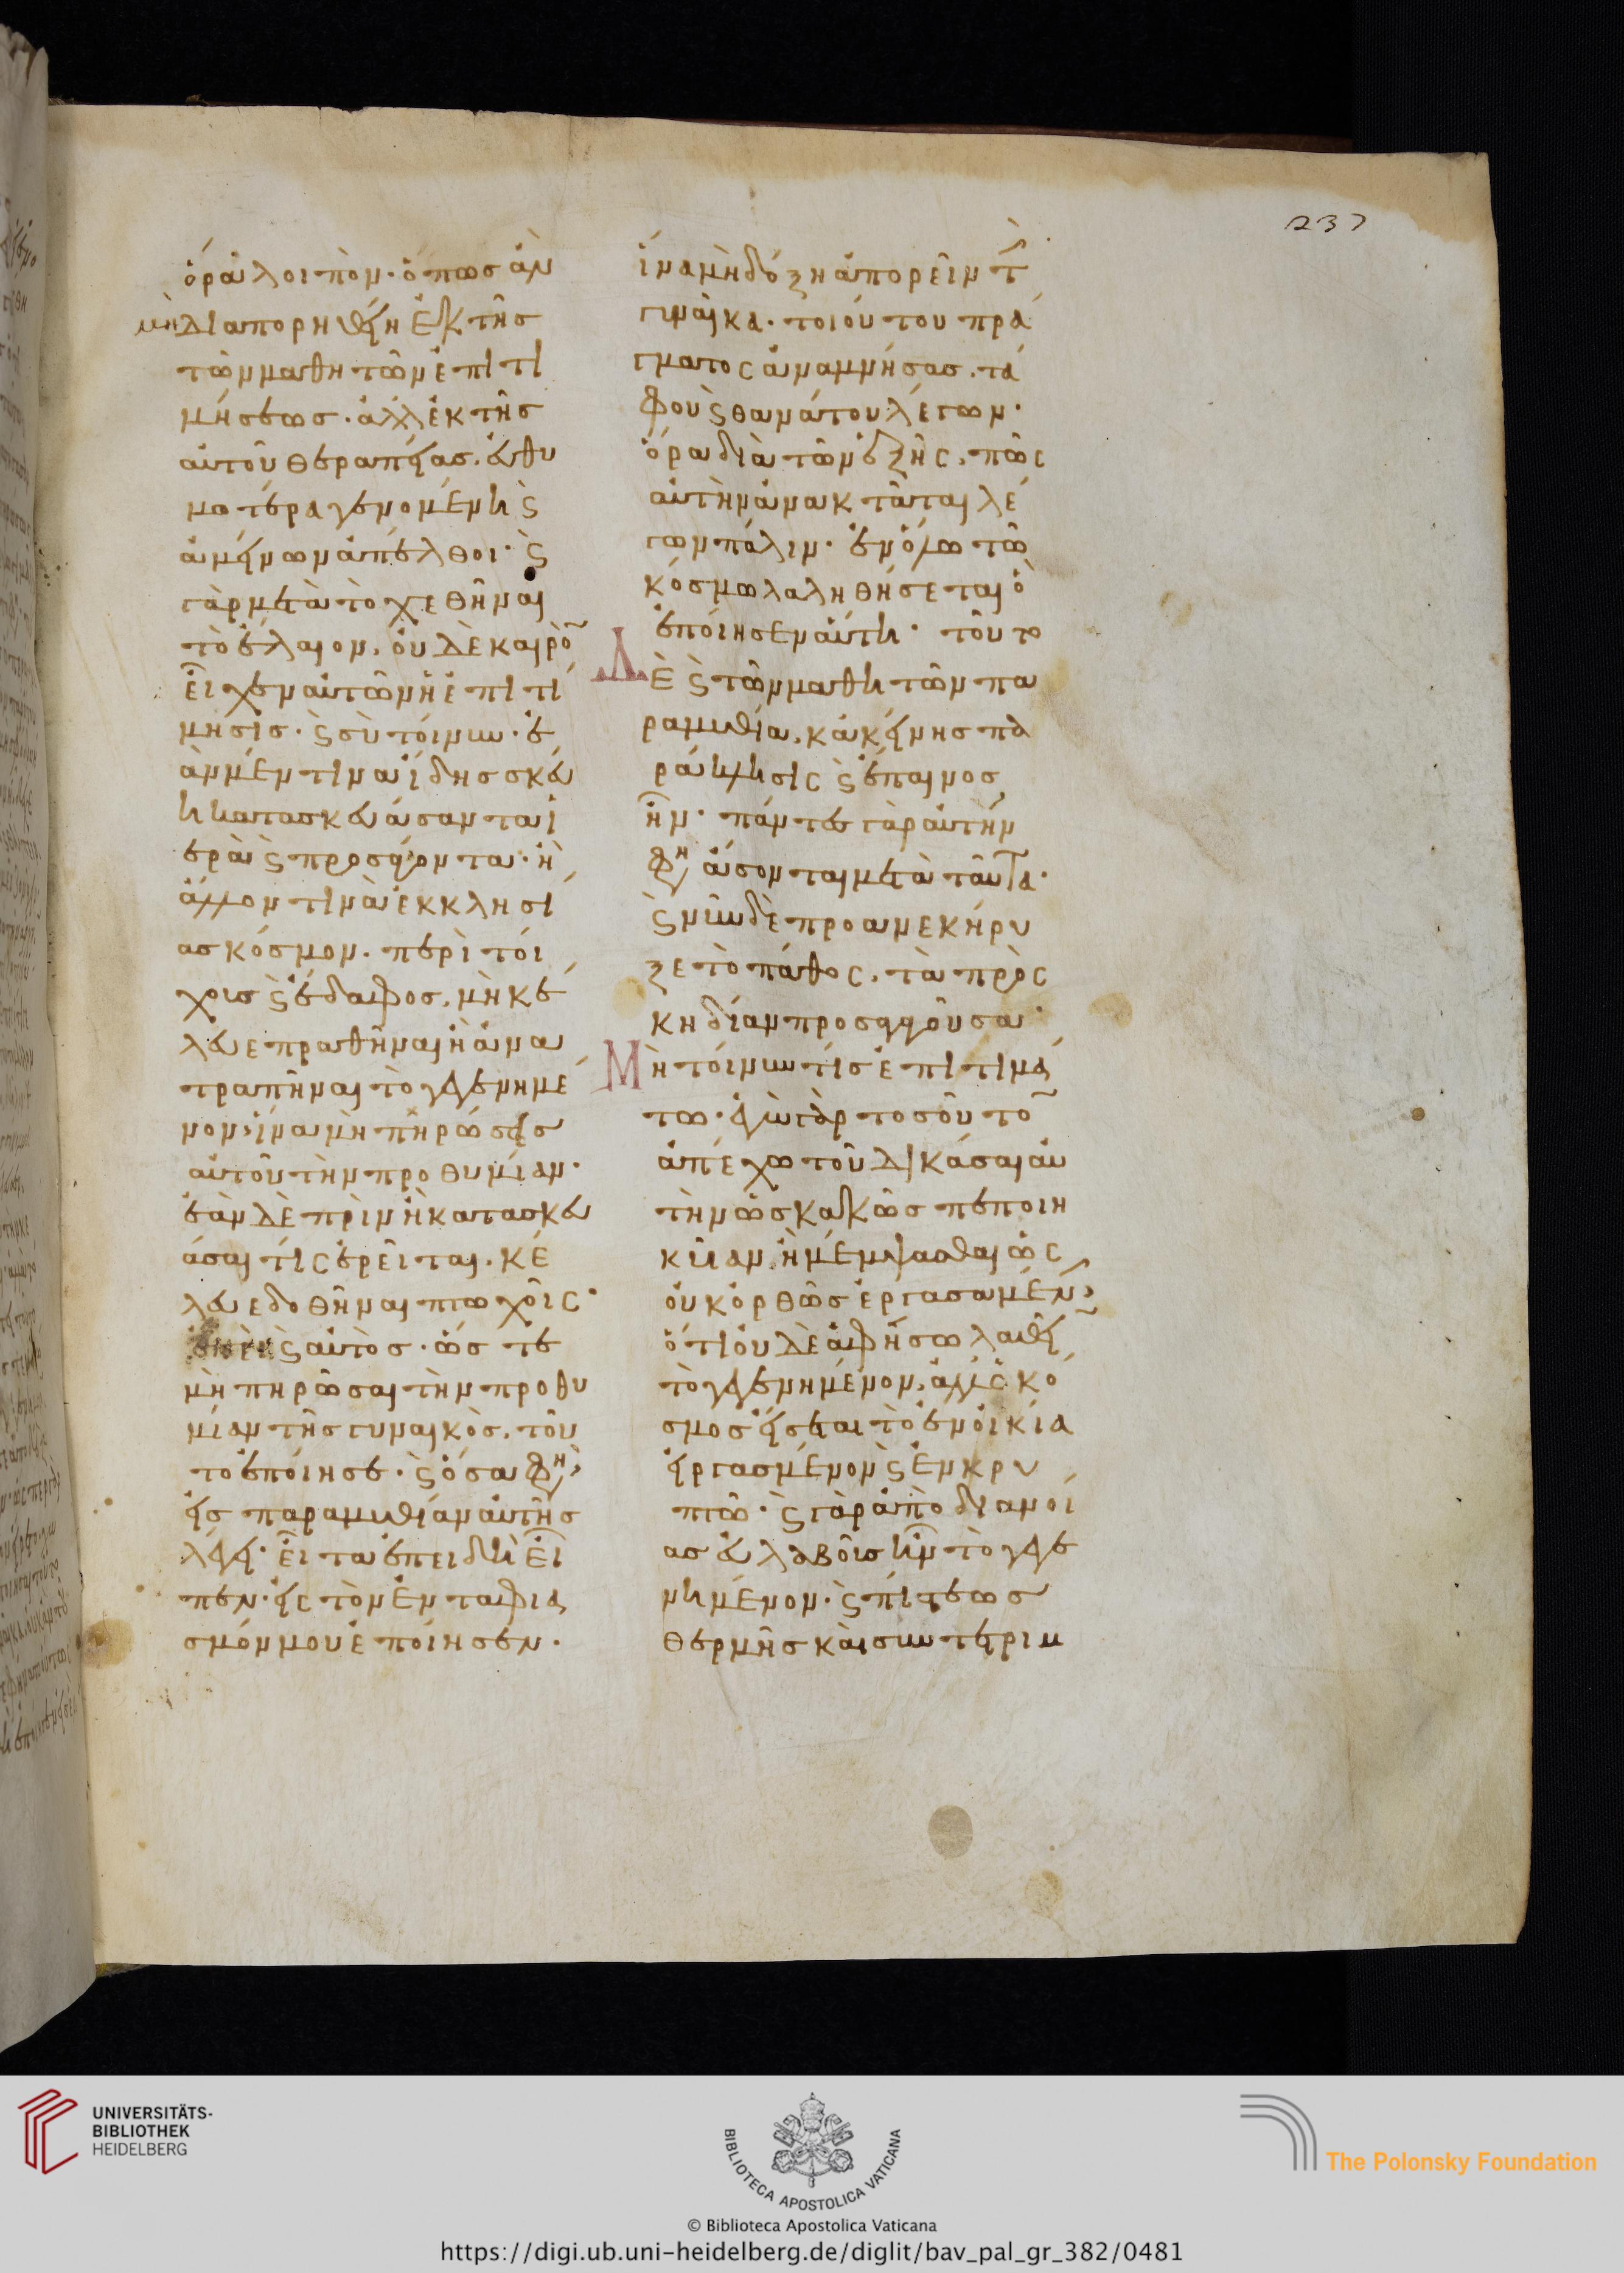 237
ὁρᾷ λοιπὸν· ὅπως ἂν
μὴ διαπορηθείη ἐκ τῆς
τῶν μαθητῶν ἐπιτι
μήσεως· ἀλλ' ἐκ τῆς
αὐτοῦ θεραπείας, εὐθυ
μοτέρα γενομένη ϗ
ἀμείνων ἀπέλθοι· ϗ
γὰρ μετὰ τὸ χεθῆναι
τὸ ἔλαιον, οὐδὲ καιρὸ̅
εἶχεν αὐτῶν ἡ ἐπιτί
μησις· ϗ σὺ τοίνυν· ἐ
ὰν μέν τινα ἴδης σκεύ
η κατασκευάσαντα ἱ
ερὰ ϗ προσφέροντα· ἢ
ἄλλον τινὰ ἐκκλησί
ας κόσμον. περὶ τοί
χους ϗ ἔδαφος, μὴ κέ
λευε πραθῆναι ἢ ἀνα
τραπῆναι τὸ γεγενημέ
νον, ἵνα μὴ πηρώσεις
αὐτοῦ τὴν προθυμίαν·
ἐὰν δὲ πρὶν ἢ κατασκευ
άσαι τὶς ἔρεῖται. κέ
λευε δοθῆναι πτωχοῖς·
ϗ αὐτὸς· ὥς τε
μὴ πηρῶσαι τὴν προθυ
μίαν τῆς γυναικὸς, τοῦ
το ἐποίησε· ϗ ὅσα φη,
εἰς παραμυθίαν αὐτῆς
λέγει· εἶτα ἐπειδὴ εἶ
πεν· εἰς τὸν ἐνταφια
σμόν μου ἐποίησεν·
ἵνα μὴ δόξη ἀπορεῖν τ̅
γυναῖκα· τοιούτου πρά
γματος ἀναμνήσας, τά
φου ϗ θανάτου λέγων·
ὅρα διὰ τῶν ἑξῆς, πῶς
αὐτὴν ἀνακτᾶται λέ
γων πάλιν· ἐν ὅλω τῶ
κόσμω λαληθήσεται ὃ
ἐποίησεν αὕτη· τοῦτο
Δὲ ϗ τῶν μαθητῶν πα
ραμυθία, κἀκείνης πα
ράκλησις ϗ ἔπαινος
ἦν· πάντες γὰρ αὐτὴν
φη ἄσονται μετὰ ταῦτα·
ϗ νῦν δὲ προανεκήρυ
ξε τὸ πάθος, τὰ πρὸς
κηδίαν προσφέρουσα·
Μὴ τοίνυν τὶς ἐπιτιμά
τω· ἐγὼ γὰρ τοσοῦτο̅
ἀπέχω τοῦ δικάσαι αὐ
τὴν ὡς κακῶς πεποιη
κυῖαν. ἢ μέμψασθαι ὡς
οὐκ ὀρθῶς ἐργασαμέν,
ὅτι οὐδὲ ἀφήσω λαθεῖ̅
τὸ γεγενημένον, ἀλλ' ὁ κό
σμος εἴσεται τὸ ἐν οἰκία
εἰργασμένον ϗ ἐν κρυ
πτῶ· ϗ γὰρ ἀπὸ διανοί
ας εὐλαβοῦς ἦν τὸ γεγε
νημένον· ϗ πίστεως
θερμῆς καὶ συντετριμ
UNIVERSITÄTS-
BIBLIOTHEK
HEIDELBERG
BIBLIOTECA APOSTOLICA VATICANA
The Polonsky Foundation
© Biblioteca Apostolica Vaticana
https://digi.ub.uni-heidelberg.de/diglit/bav_pal_gr_382/0481